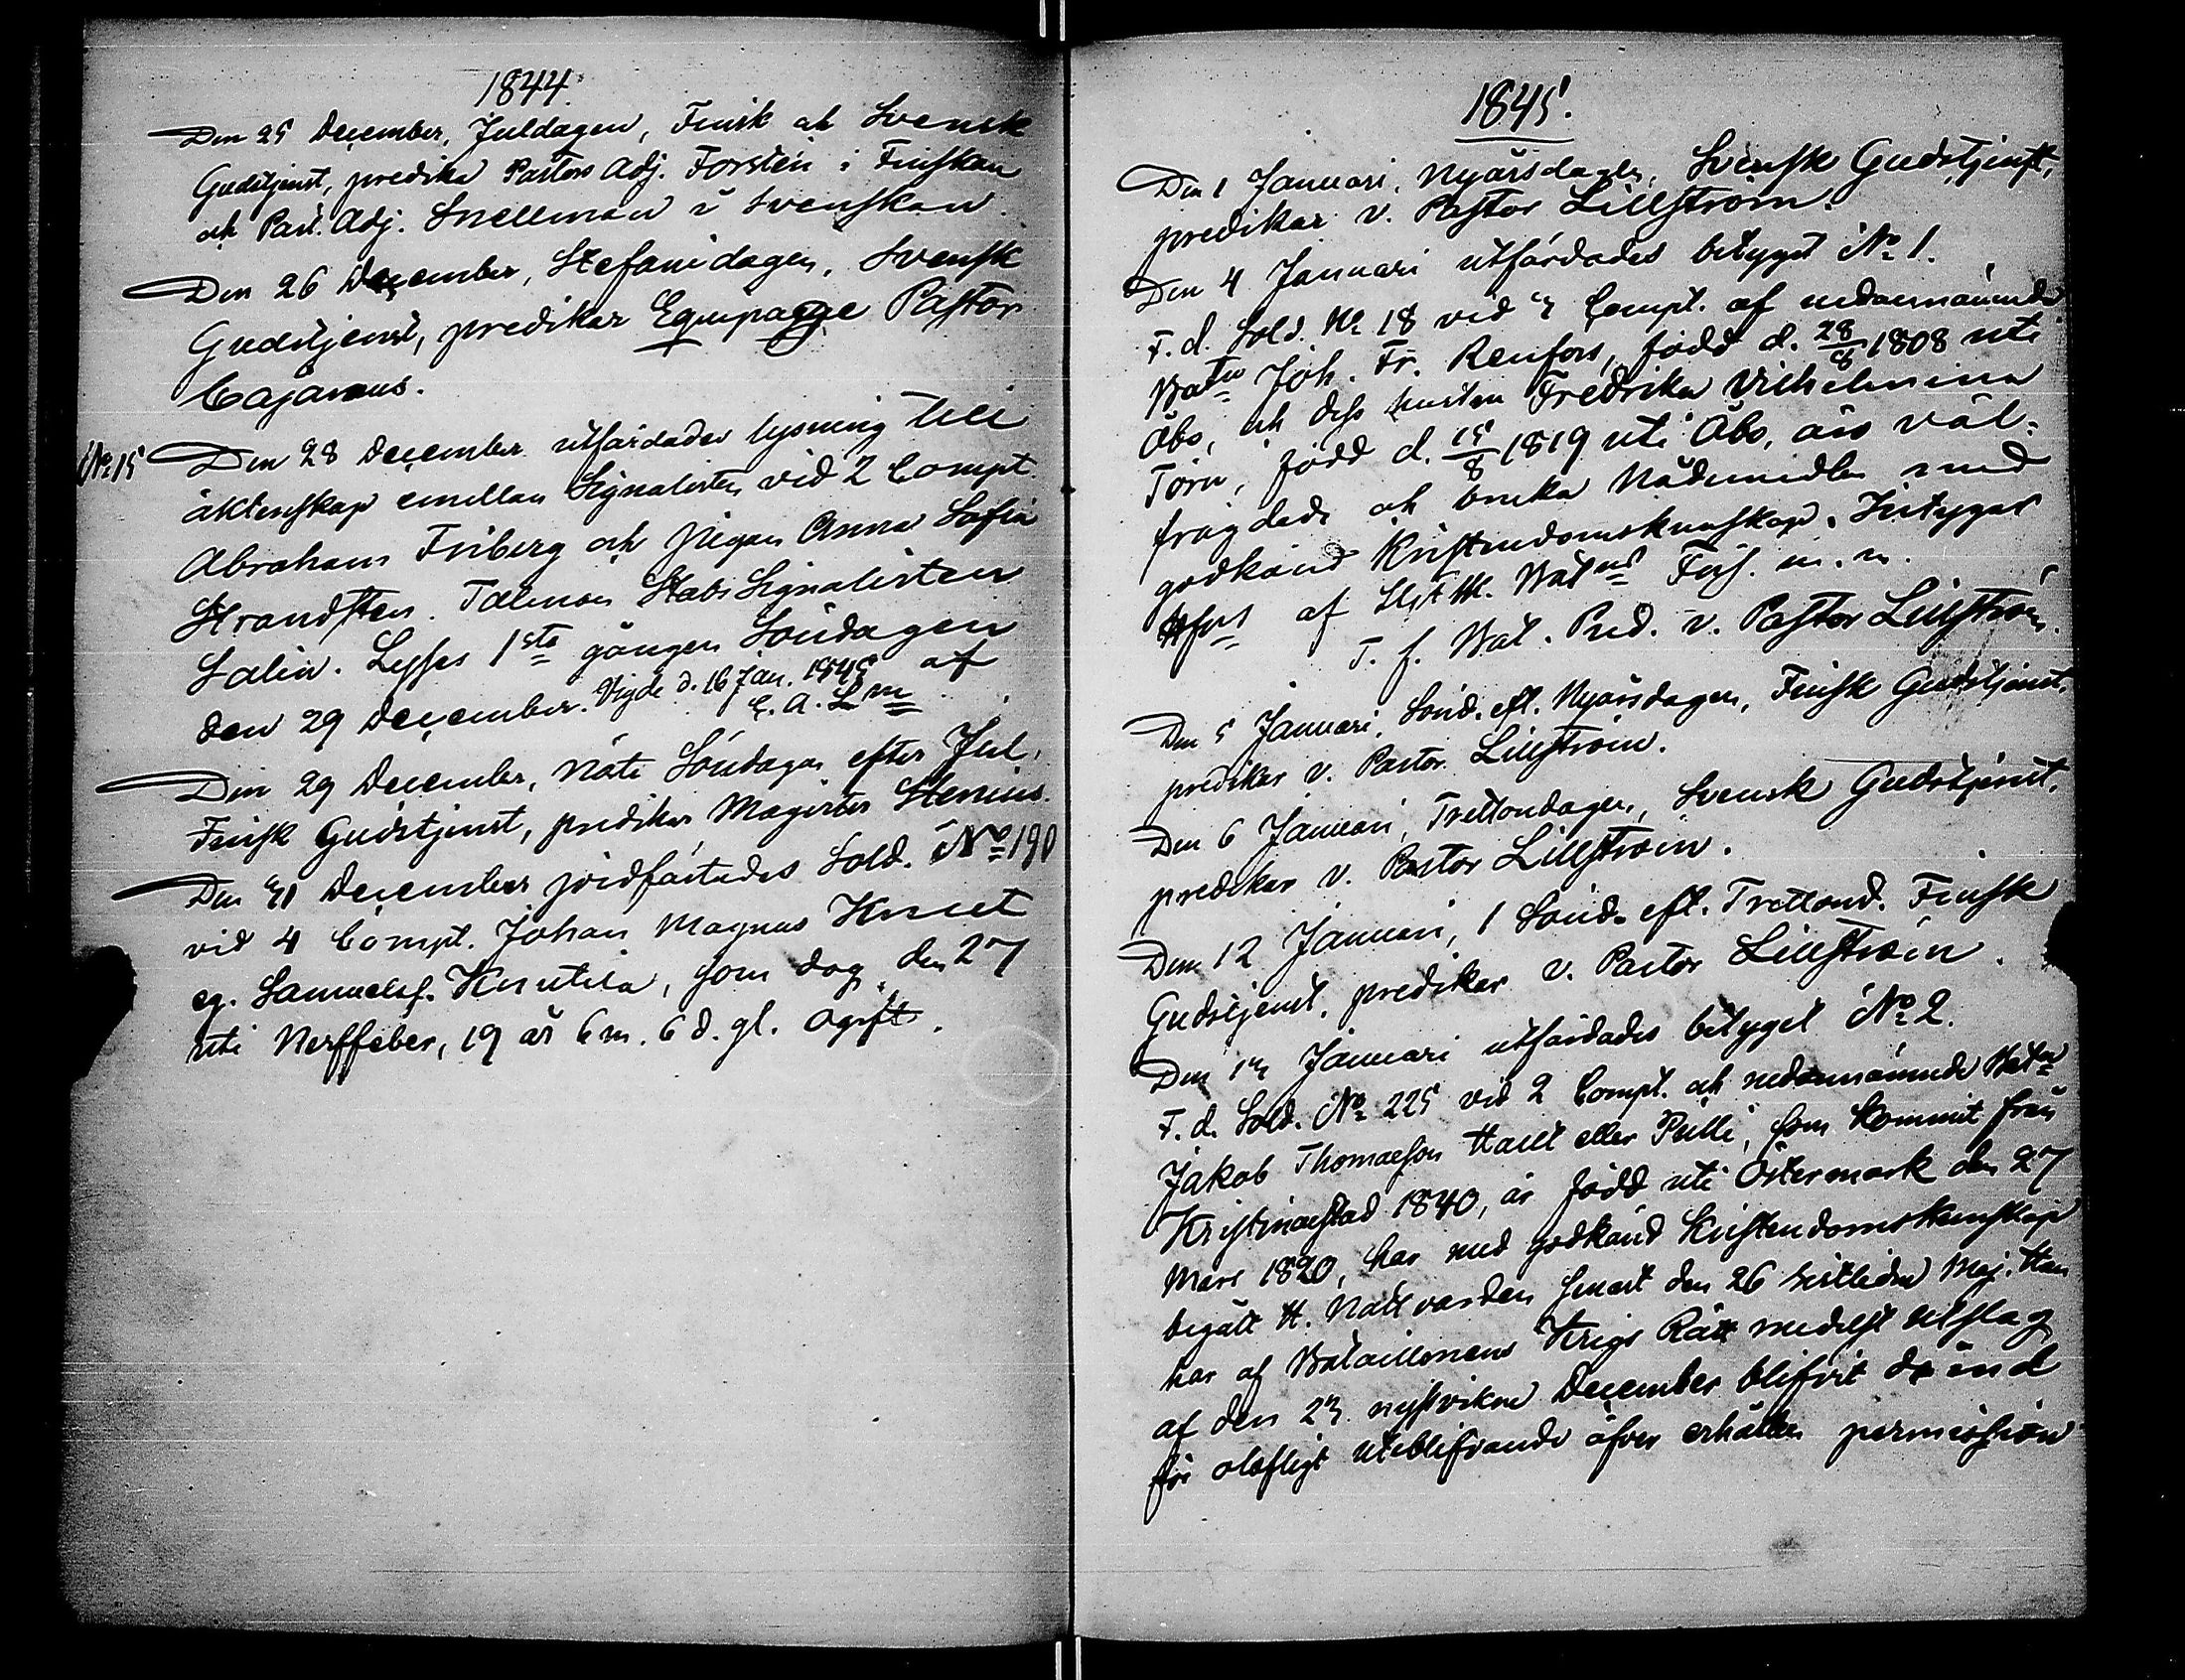 1844.
Den 25 December, Juldagen, Finsk och Svensk
Gudstjenst, predika Pastors Adj. Forstén i Finskan
och Past. Adj. Snellman i Svenskan.
Den 26 December, Stefanidagen, Svensk
Gudstjenst, predikar Equipagge Pastor
Cajanus.
No 15 Den 28 December utfärdades lysning till
äktenskap emellan Signalisten vid 2 Compt.
Abraham Friberg och pigan Anna Sofia
Strandsten. Talman Stabs Signalisten
Salin. Lyses 1sta gången Söndagen
den 29 December. Vigde d. 16 Jan. 1845 af
C. A. Lm
Den 29 December, näst Söndagen efter Jul,
Finsk Gudstjenst, predikar Magister Stenius.
Den 31 December jordfästades Sold. No 190
vid 4 Compt. Johan Magnus Knuet
eg. Samuelsf. Knutila, som dog den 27
uti Nerffeber, 19 år 6 m. 6 d. gl. ogift.
1845.
Den 1 Januari, Nyårsdagen, Svensk Gudstjenst,
predikar v. Pastor Lillström.
Den 4 Januari utfärdades betyget No 1.
F. d. Sold. No 18 vid 3 Compt. af nedannämnde
Batn Joh. Fr. Renfors, född d. 28/8 1808 uti
Åbo, och dess hustru Fredrika Vilhelmina
Törn, född d. 15/8 1819 uti Åbo, äro väl-
frägdade och bruka Nådemidlen med
godkänd Kristendomskunskap. Intygar
Hfors af Bat. Förs. m. m.
T. f. Bat. Pred. v. Pastor Lillström.
Den 5 Januari, Sönd. eft. Nyårsdagen, Finsk Gudstjenst,
predikar v. Pastor Lillström.
Den 6 Januari, Trettondagen, Svensk Gudstjenst,
predikar v. Pastor Lillström.
Den 12 Januari, 1 Sönd. eft. Trettond. Finsk
Gudstjenst, predikar v. Pastor Lillström.
Den 13 Januari utfärdades betyget No 2.
F. d. Sold. No 225 vid 2 Compt. och nedannämnde Batn
Jakob Thomasson Hallt eller Pulli, som kommit från
Kristinaestad 1840, är född uti Östermark den 27
Mars 1820, har med godkänd Kristendomskunskap
begått H. Nattvarden senast den 26 sistledne Maj. Han
har af Bataillonens Krigs Rätt medelst utslag
af den 23 nyssvikne December blifvit dömd
för olofligt uteblifvande öfver erhållen permission